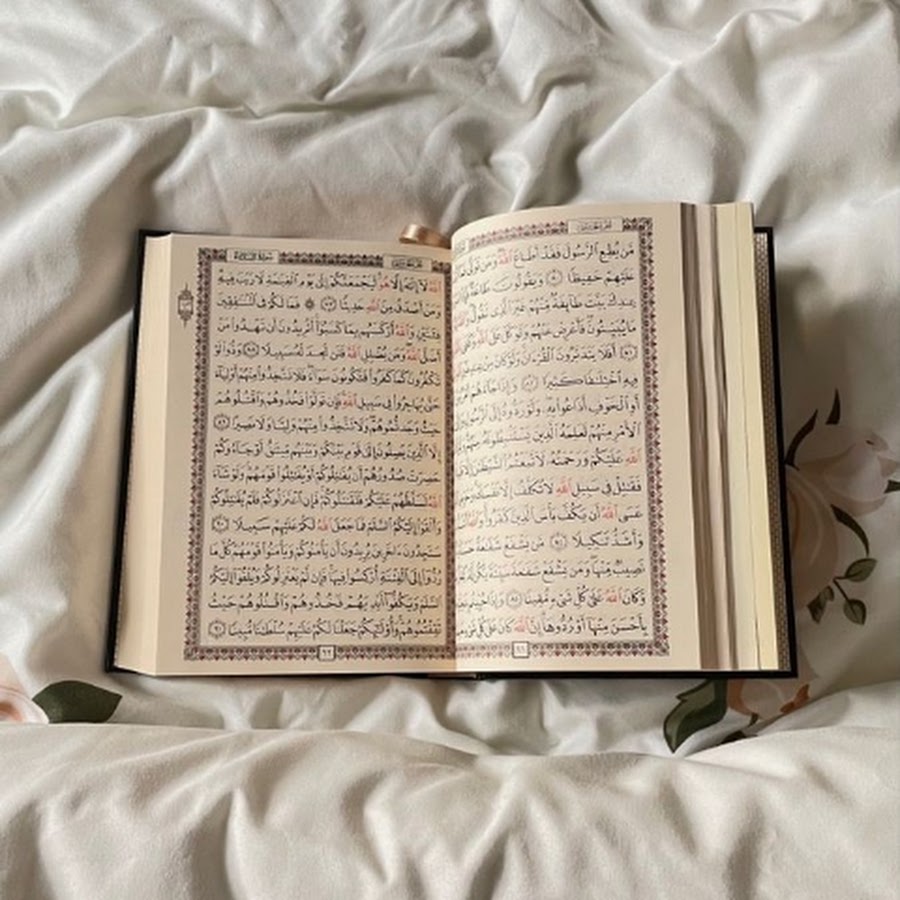 مَّن يُطِعِ ٱلرَّسُولَ فَقَدْ أَطَاعَ ٱللَّهَ وَمَن تَوَلَّىٰ
عَلَيْهِمْ حَفِيظًا ۝٨٠ وَيَقُولُونَ طَاعَةٌ
عِندِكَ بَيَّتَ طَآئِفَةٌ مِّنْهُمْ غَيْرَ ٱلَّذِى تَقُولُ
مَا يُبَيِّتُونَ فَأَعْرِضْ عَنْهُمْ وَتَوَكَّلْ عَلَى ٱللَّهِ
۝٨١ أَفَلَا يَتَدَبَّرُونَ ٱلْقُرْءَانَ وَلَوْ كَانَ مِنْ
فِيهِ ٱخْتِلَٰفًا كَثِيرًا ۝٨٢ وَإِذَا جَآءَهُمْ
أَوِ ٱلْخَوْفِ أَذَاعُوا۟ بِهِۦ وَلَوْ رَدُّوهُ إِلَى ٱلرَّسُولِ
ٱلْأَمْرِ مِنْهُمْ لَعَلِمَهُ ٱلَّذِينَ يَسْتَنۢبِطُونَهُۥ مِنْهُمْ
ٱللَّهِ عَلَيْكُمْ وَرَحْمَتُهُۥ لَٱتَّبَعْتُمُ ٱلشَّيْطَٰنَ
فَقَٰتِلْ فِى سَبِيلِ ٱللَّهِ لَا تُكَلَّفُ إِلَّا نَفْسَكَ
عَسَى ٱللَّهُ أَن يَكُفَّ بَأْسَ ٱلَّذِينَ كَفَرُوا۟ وَٱللَّهُ
وَأَشَدُّ تَنكِيلًا ۝٨٤ مَّن يَشْفَعْ شَفَٰعَةً
نَصِيبٌ مِّنْهَا وَمَن يَشْفَعْ شَفَٰعَةً سَيِّئَةً يَكُن لَّهُۥ
وَكَانَ ٱللَّهُ عَلَىٰ كُلِّ شَىْءٍ مُّقِيتًا ۝٨٥ وَإِذَا حُيِّيتُم
بِأَحْسَنَ مِنْهَآ أَوْ رُدُّوهَآ إِنَّ ٱللَّهَ كَانَ عَلَىٰ كُلِّ شَىْءٍ
٩١
سُورَةُ ٱلنِّسَاءِ
ٱللَّهُ لَآ إِلَٰهَ إِلَّا هُوَ لَيَجْمَعَنَّكُمْ إِلَىٰ يَوْمِ ٱلْقِيَٰمَةِ لَا رَيْبَ فِيهِ
وَمَنْ أَصْدَقُ مِنَ ٱللَّهِ حَدِيثًا ۝٨٧ ۞ فَمَا لَكُمْ فِى ٱلْمُنَٰفِقِينَ
فِئَتَيْنِ وَٱللَّهُ أَرْكَسَهُم بِمَا كَسَبُوٓا۟ أَتُرِيدُونَ أَن تَهْدُوا۟ مَنْ
أَضَلَّ ٱللَّهُ وَمَن يُضْلِلِ ٱللَّهُ فَلَن تَجِدَ لَهُۥ سَبِيلًا ۝٨٨ وَدُّوا۟ لَوْ
تَكْفُرُونَ كَمَا كَفَرُوا۟ فَتَكُونُونَ سَوَآءً فَلَا تَتَّخِذُوا۟ مِنْهُمْ أَوْلِيَآءَ
حَتَّىٰ يُهَاجِرُوا۟ فِى سَبِيلِ ٱللَّهِ فَإِن تَوَلَّوْا۟ فَخُذُوهُمْ وَٱقْتُلُوهُمْ
حَيْثُ وَجَدتُّمُوهُمْ وَلَا تَتَّخِذُوا۟ مِنْهُمْ وَلِيًّا وَلَا نَصِيرًا ۝٨٩
إِلَّا ٱلَّذِينَ يَصِلُونَ إِلَىٰ قَوْمٍۭ بَيْنَكُمْ وَبَيْنَهُم مِّيثَٰقٌ أَوْ جَآءُوكُمْ
حَصِرَتْ صُدُورُهُمْ أَن يُقَٰتِلُوكُمْ أَوْ يُقَٰتِلُوا۟ قَوْمَهُمْ وَلَوْ شَآءَ
ٱللَّهُ لَسَلَّطَهُمْ عَلَيْكُمْ فَلَقَٰتَلُوكُمْ فَإِنِ ٱعْتَزَلُوكُمْ فَلَمْ يُقَٰتِلُوكُمْ
وَأَلْقَوْا۟ إِلَيْكُمُ ٱلسَّلَمَ فَمَا جَعَلَ ٱللَّهُ لَكُمْ عَلَيْهِمْ سَبِيلًا ۝٩٠
سَتَجِدُونَ ءَاخَرِينَ يُرِيدُونَ أَن يَأْمَنُوكُمْ وَيَأْمَنُوا۟ قَوْمَهُمْ كُلَّ مَا
رُدُّوٓا۟ إِلَى ٱلْفِتْنَةِ أُرْكِسُوا۟ فِيهَا فَإِن لَّمْ يَعْتَزِلُوكُمْ وَيُلْقُوٓا۟ إِلَيْكُمُ
ٱلسَّلَمَ وَيَكُفُّوٓا۟ أَيْدِيَهُمْ فَخُذُوهُمْ وَٱقْتُلُوهُمْ حَيْثُ
ثَقِفْتُمُوهُمْ وَأُو۟لَٰٓئِكُمْ جَعَلْنَا لَكُمْ عَلَيْهِمْ سُلْطَٰنًا مُّبِينًا ۝٩١
٩٢